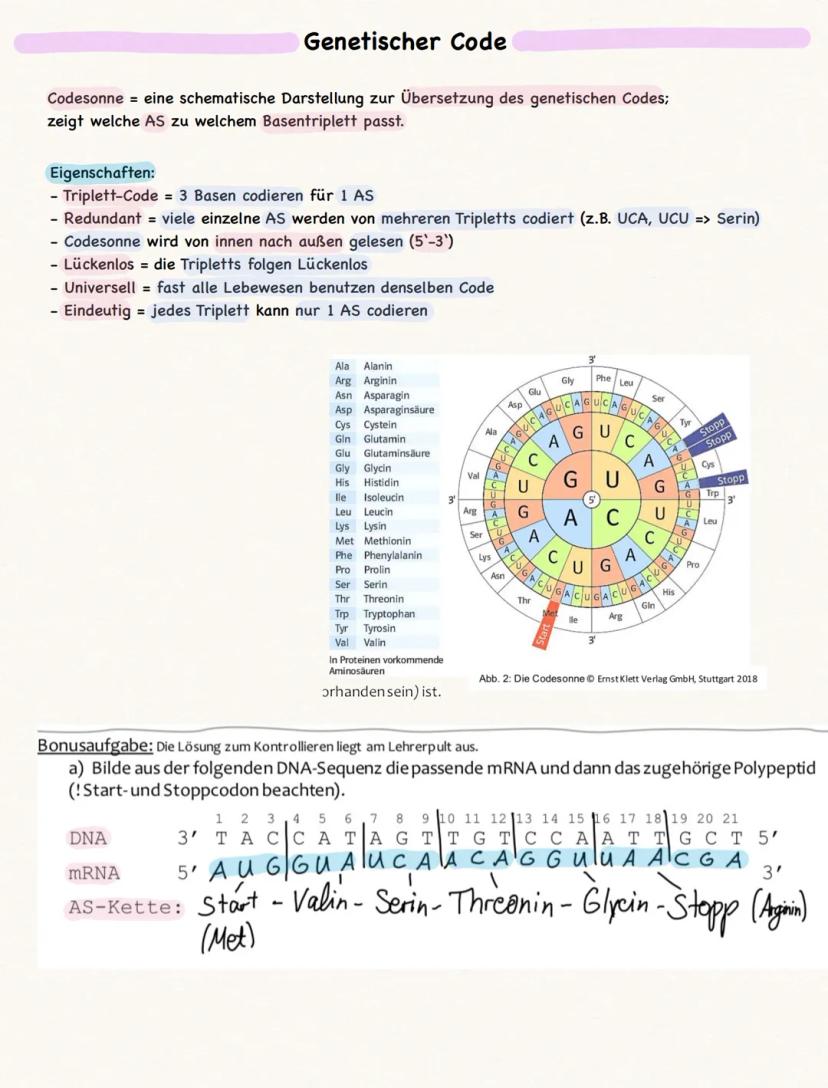 Genetischer Code
Codesonne = eine schematische Darstellung zur Übersetzung des genetischen Codes;
zeigt welche AS zu welchem Basentriplett passt.
Eigenschaften:
- Triplett-Code = 3 Basen codieren für 1 AS
- Redundant = viele einzelne AS werden von mehreren Tripletts codiert (z.B. UCA, UCU => Serin)
- Codesonne wird von innen nach außen gelesen (5`-3`)
- Lückenlos = die Tripletts folgen Lückenlos
- Universell = fast alle Lebewesen benutzen denselben Code
- Eindeutig = jedes Triplett kann nur 1 AS codieren
Ala Alanin
Arg Arginin
Asn Asparagin
Asp Asparaginsäure
Cys Cystein
Gln Glutamin
Glu Glutaminsäure
Gly Glycin
His Histidin
Ile Isoleucin
Leu Leucin
Lys Lysin
Met Methionin
Phe Phenylalanin
Pro Prolin
Ser Serin
Thr Threonin
Trp Tryptophan
Tyr Tyrosin
Val Valin
In Proteinen vorkommende
Aminosäuren
3'
Phe
Leu
Ser
Tyr
Stopp
Stopp
Cys
Stopp
Trp
3'
Leu
Pro
His
Gln
Arg
3'
Ile
Met
Start
Thr
Asn
Lys
Ser
Arg
3'
Val
Ala
Asp
Glu
Gly
U C A G
U C A G
U C A G
U C A G
G U
5'
A C
Abb. 2: Die Codesonne © Ernst Klett Verlag GmbH, Stuttgart 2018
orhanden sein) ist.
Bonusaufgabe: Die Lösung zum Kontrollieren liegt am Lehrerpult aus.
a) Bilde aus der folgenden DNA-Sequenz die passende mRNA und dann das zugehörige Polypeptid
(! Start- und Stoppcodon beachten).
1 2 3 4 5 6 7 8 9 10 11 12 13 14 15 16 17 18 19 20 21
DNA 3' T A C C A T A G T T G T C C A A T T G C T 5'
mRNA 5' A U G G U A U C A A C A G G U U A A C G A 3'
AS-Kette: Start - Valin - Serin - Threonin - Glycin - Stopp (Arginin)
(Met)